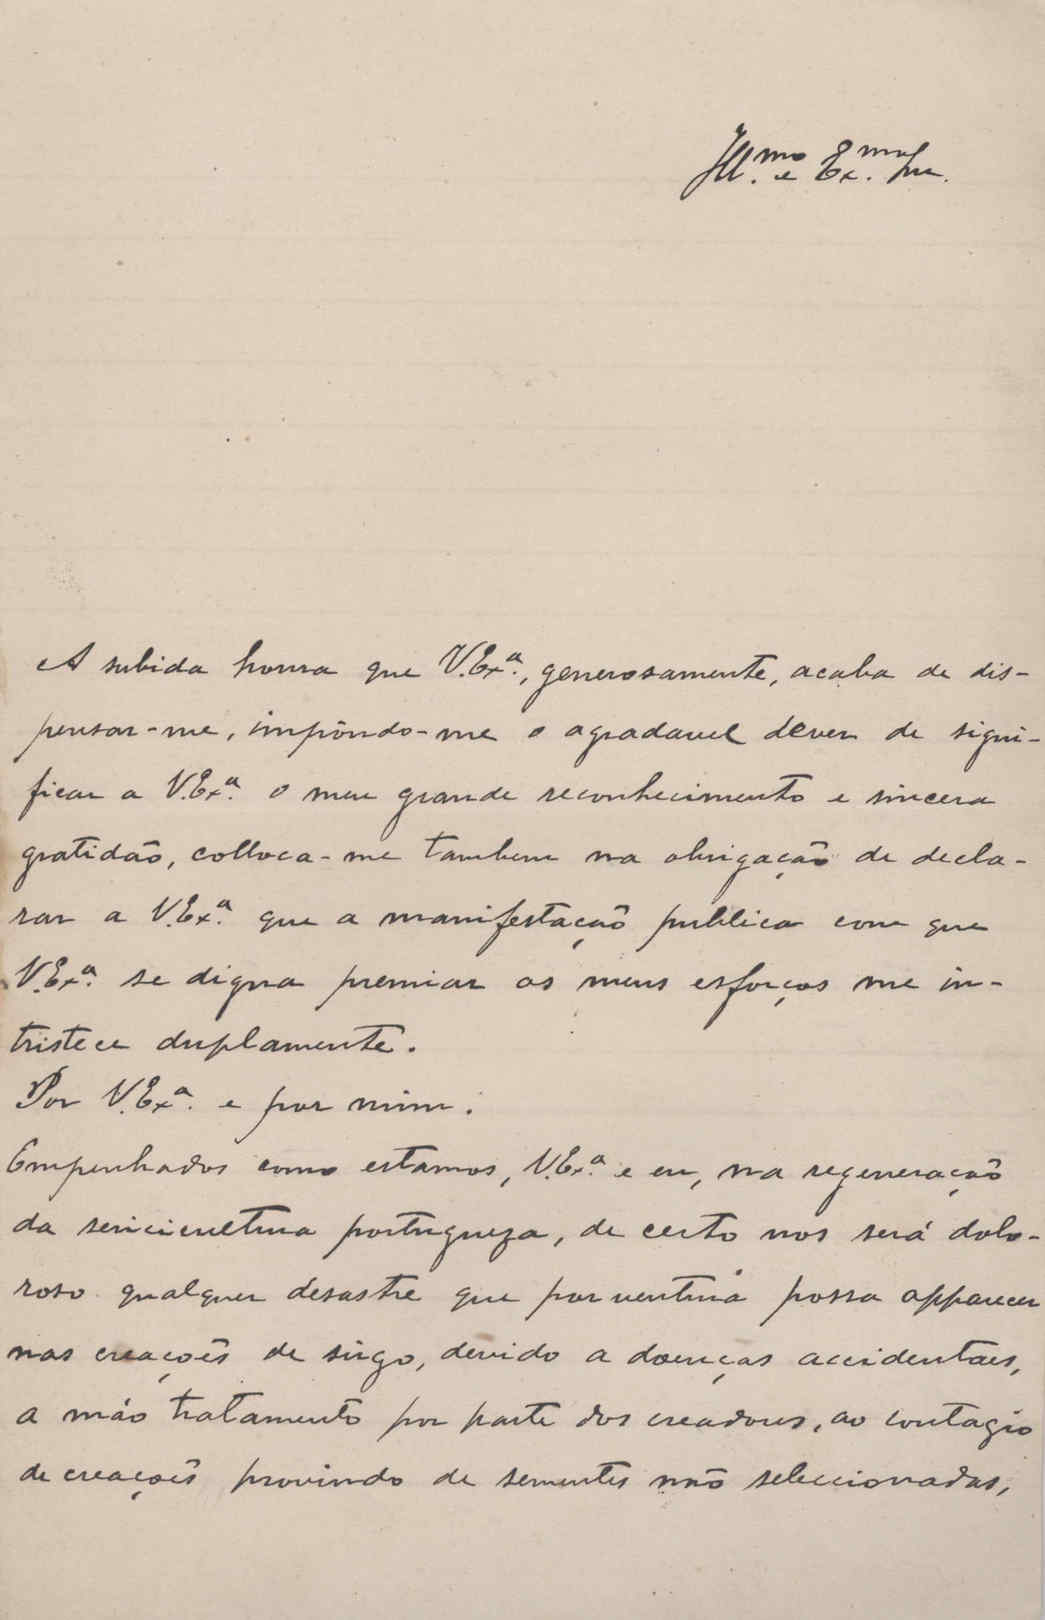 Ill.mo e Ex.mo Snr.
A subida honra que V.Exª., generosamente, acaba de dis-
pensar-me, impôndo-me o agradavel dever de signi-
ficar a V.Exª. o meu grande reconhecimento e sincera
gratidão, colloca-me tambem na obrigação de decla-
rar a V.Exª. que a manifestação publica com que
V.Exª. se digna premiar os meus esforços me in-
tristece duplamente.
Por V.Exª. e por mim.
Empenhados como estamos, V.Exª. e eu, na regeneração
da sericicultura portugueza, de certo nos será dolo-
roso qualquer desastre que porventura possa apparecer
nas creações de sirgo, devido a doenças accidentaes,
a máo tratamento por parte dos creadores, ao contagio
de creações provindo de sementes não seleccionadas,